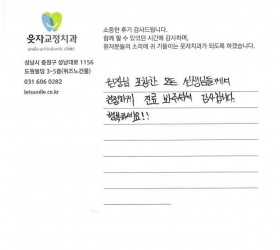 웃자교정치과
소중한 후기 감사드립니다.
함께 할 수 있었던 시간에 감사하며,
환자분들의 소리에 귀 기울이는 웃자치과가 되도록 하겠습니다.
성남시 중원구 성남대로 1156
도원빌딩 3-5층(위즈노건물)
031 606 0282
letsunile.co.kr
원장님 포함한 모든 선생님들께서
친절하게 진료 봐주셔서 감사합니다.
행복하세요!!